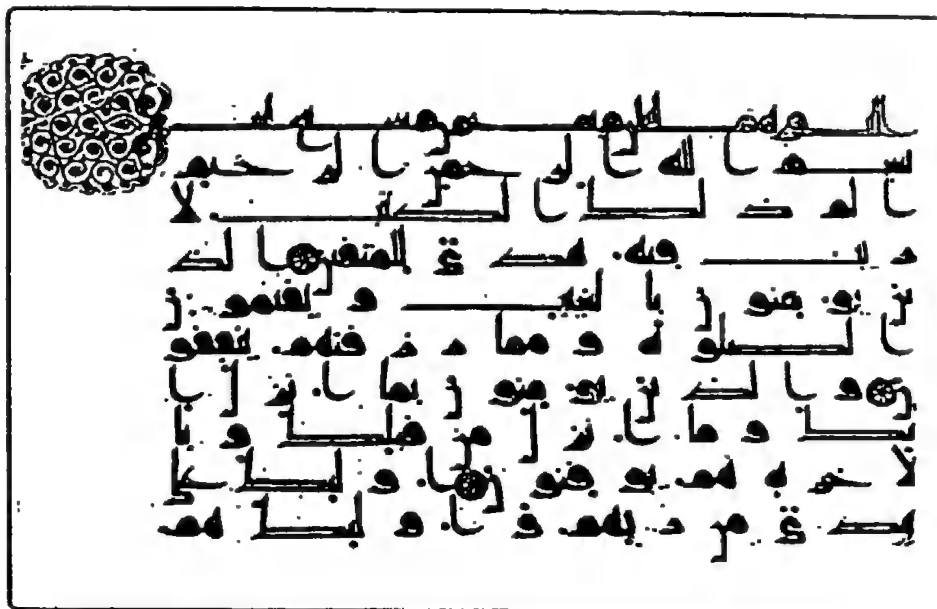 بسم الله الرحمن الرحيم
الم ذلك الكتب لا
ريب فيه هدى للمتقين الذ
ين يومنون بالغيب ويقيمون
الصلوه ومما رزقنهم ينفقو
ن والذين يومنون بما انزل ا
ليك وما انزل من قبلك وبا
لاخره هم يوقنون اولئك على
هدى من ربهم واولئك هم